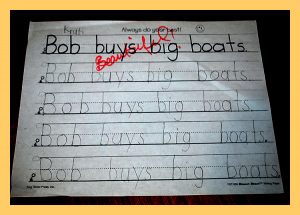 Always do your best!
Bob buys big boats.
Beautiful!
Bob buys big boats.
Bob buys big boats.
Bob buys big boats.
Bob buys big boats